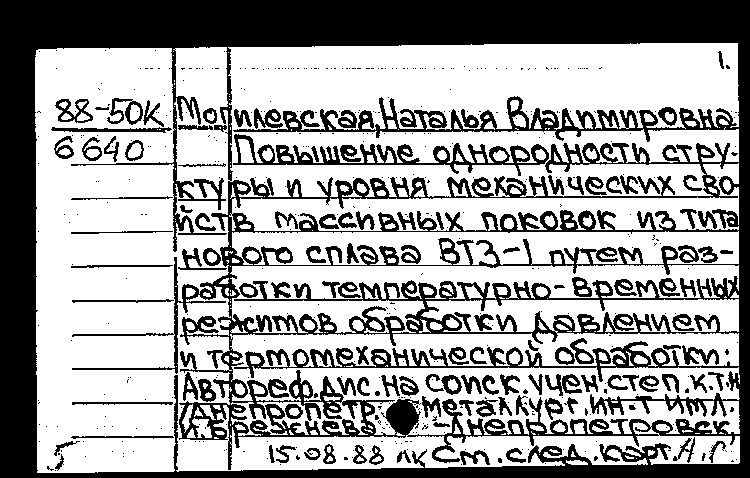 1.
88-50К Могилевская, Наталья Владимировна
6640 Повышение однородности стру-
ктуры и уровня механических сво-
йств массивных поковок из тита
нового сплава ВТ3-1 путем раз-
работки температурно-временных
режимов обработки давлением
и термомеханической обработки:
Автореф.дис.на соиск.учен.степ.к.т.н
/Днепропетр. металлург.ин-т им.Л.
И.Брежнева -Днепропетровск,
5 15.08.88 лк См.след.карт.